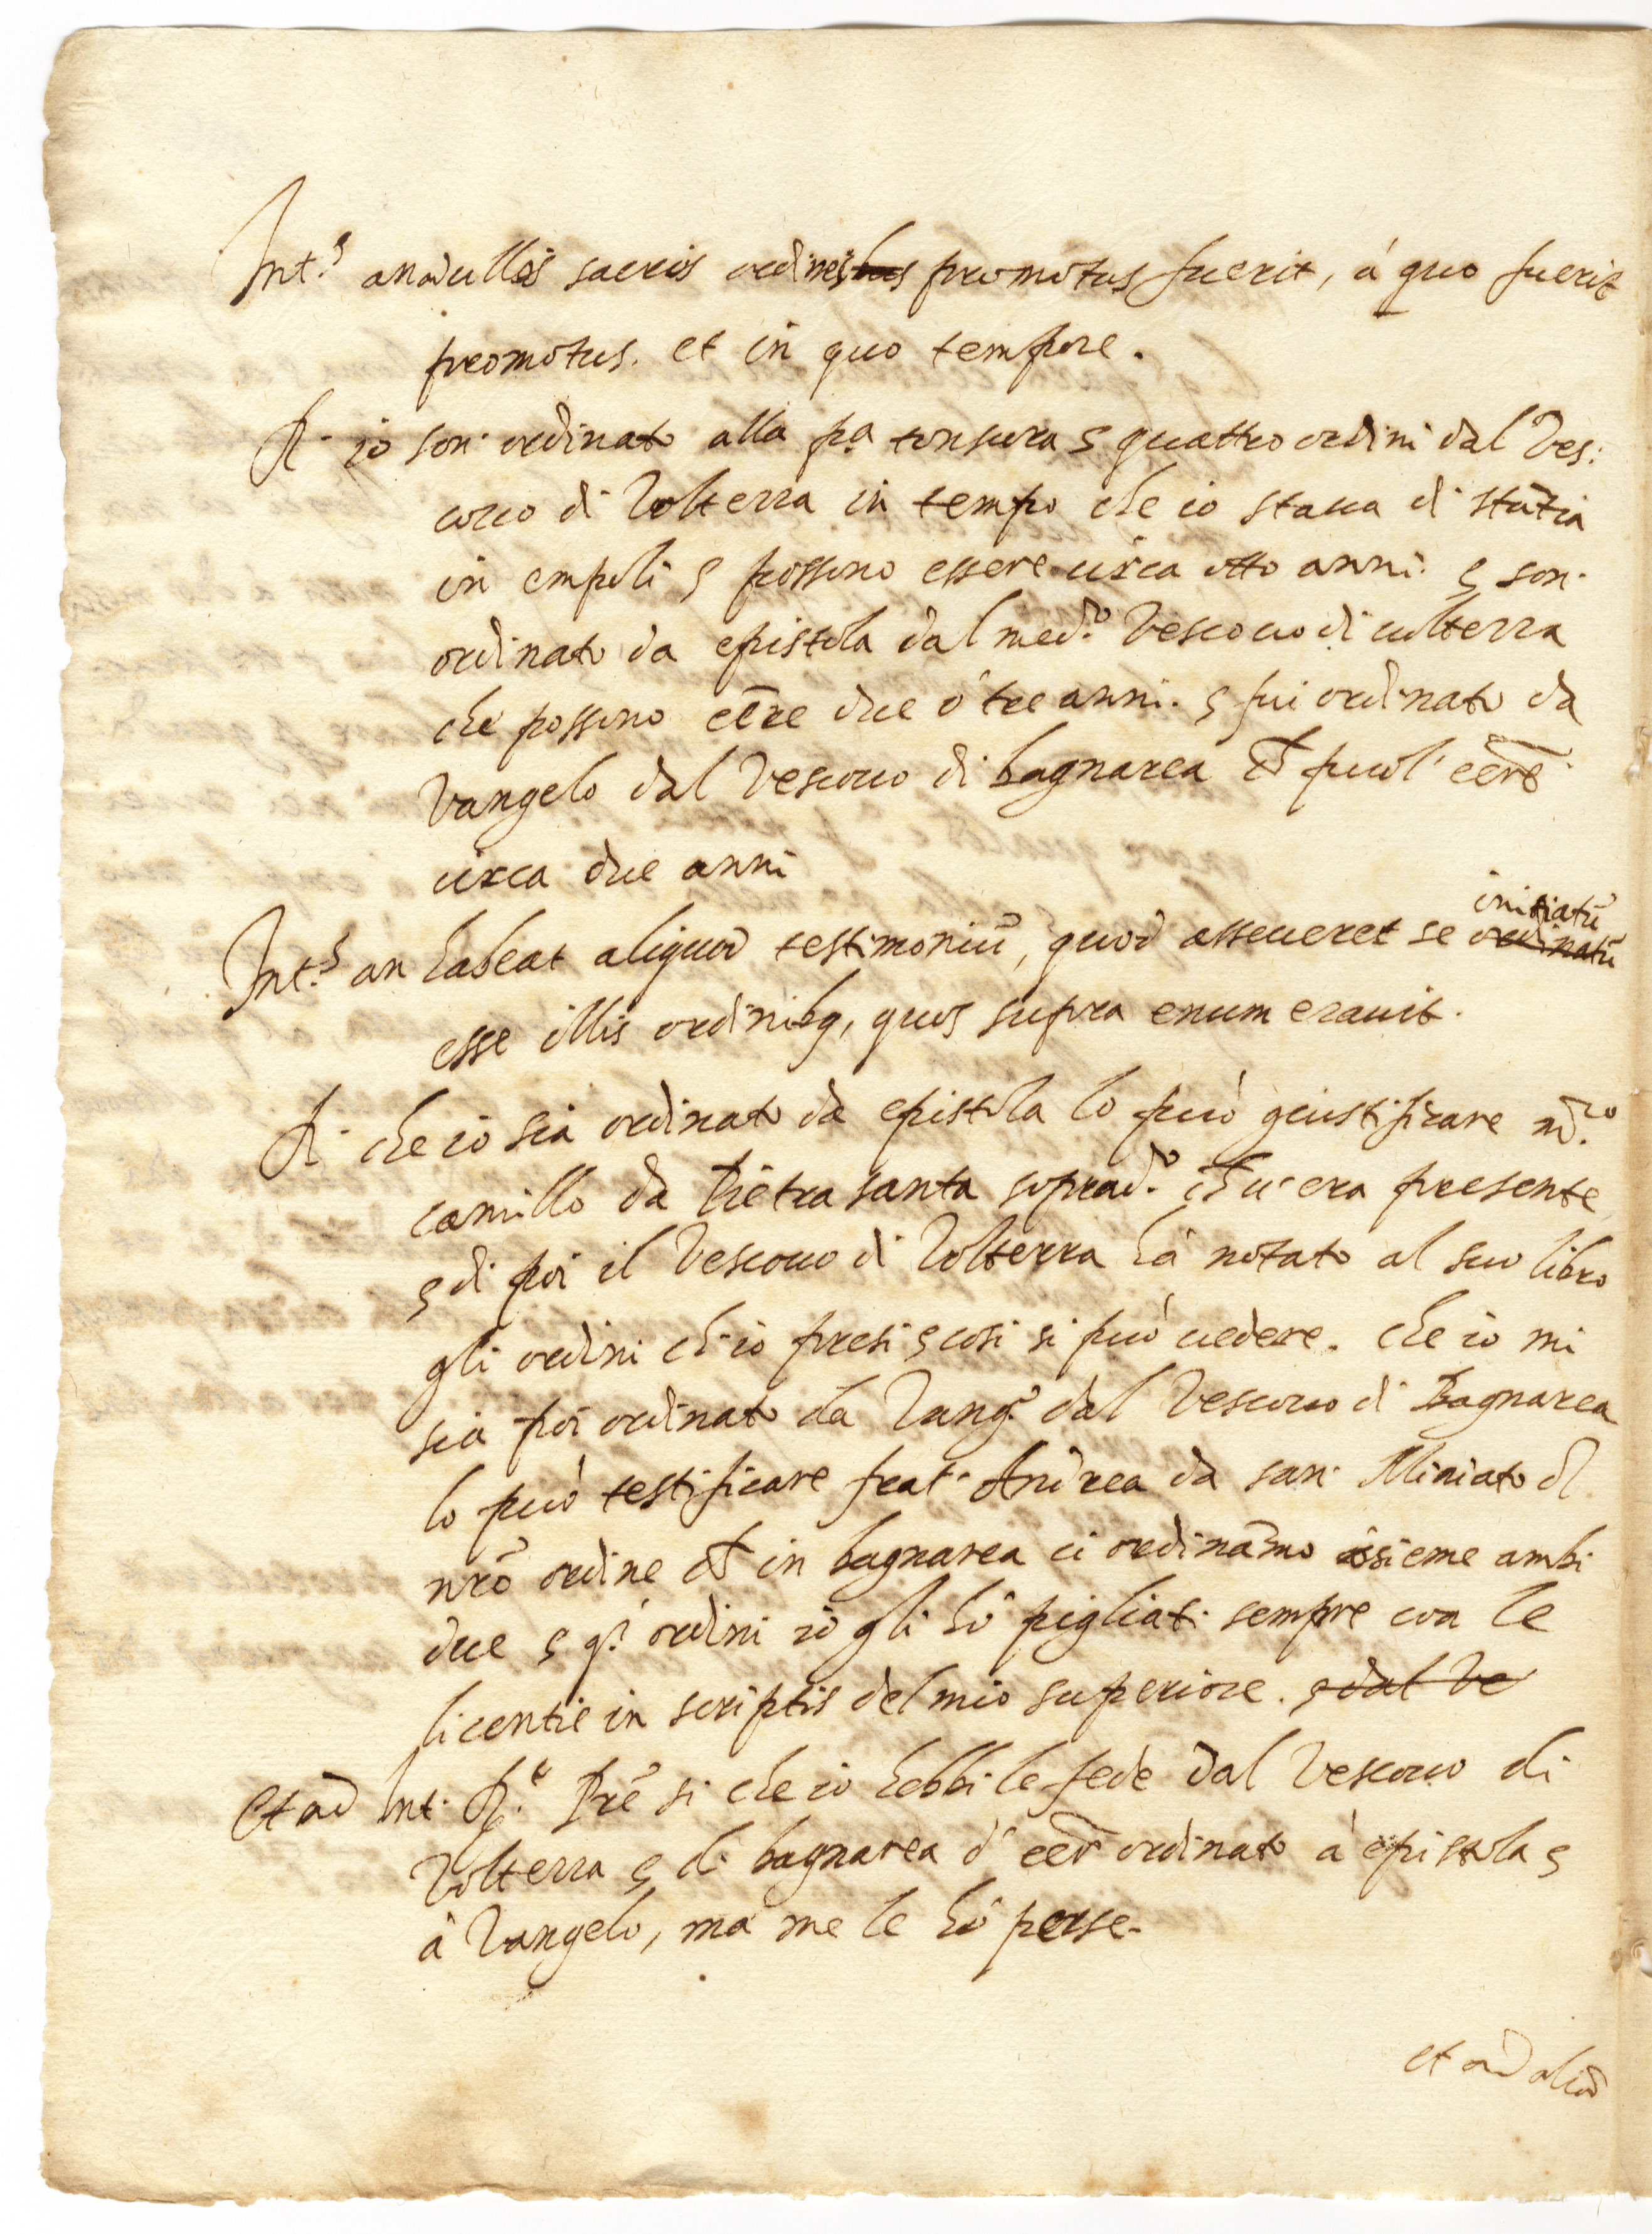 Int.s an ad ullos sacros ordines promotus fuerit, à quo fuerit
promotus. et in quo tempore.
R. io son. ordinato alla pa tonsura e quattro ordini dal Ves:
couo di Volterra in tempo che io staua di stātia
in empoli e possono essere circa otto anni. e son.
ordinato da epistola dal med.o Vescouo di uolterra
che possono eēre due ò tre anni. e fui ordinato da
Vangelo dal Vescouo di bagnarea et puol' eēre
circa due anni
initiatū
Int.s an habeat aliquod testimoniū, quod asseueret se ordinatū
esse illis ordinibq, quos supra enumerauit.
R. che io sia ordinato da epistola lo può giustificare m.ro
camillo da Pietra santa soprad.o ch u'era presente
e di poi il Vescouo di Volterra hà notato al suo libro
gli ordini ch'io presi e cosi si può uedere. che io mi
sia poi ordinato da Vang.o dal Vescouo di Bagnarea
lo può testificare frat. Andrea da san. Miniato dl
nrō ordine et in bagnarea ci ordināmo assieme ambi
due e q.i ordini io gli hò pigliati sempre con le
licentie in scriptis del mio superiore. e dal Ve
Et ad Int. R.t Prē si che io hebbi le fede dal Vescouo di
Volterra e di bagnarea d' eēr ordinato à epistola e
à Vangelo, ma me le hò perse.
et ad aliād